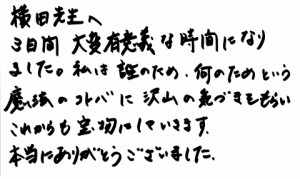 横田先生へ
3日間 大変有意義な時間になり
ました。私は誰のため、何のためという
魔法のコトバに沢山の気づきをもらい
これからも宝物にしていきます。
本当にありがとうございました。